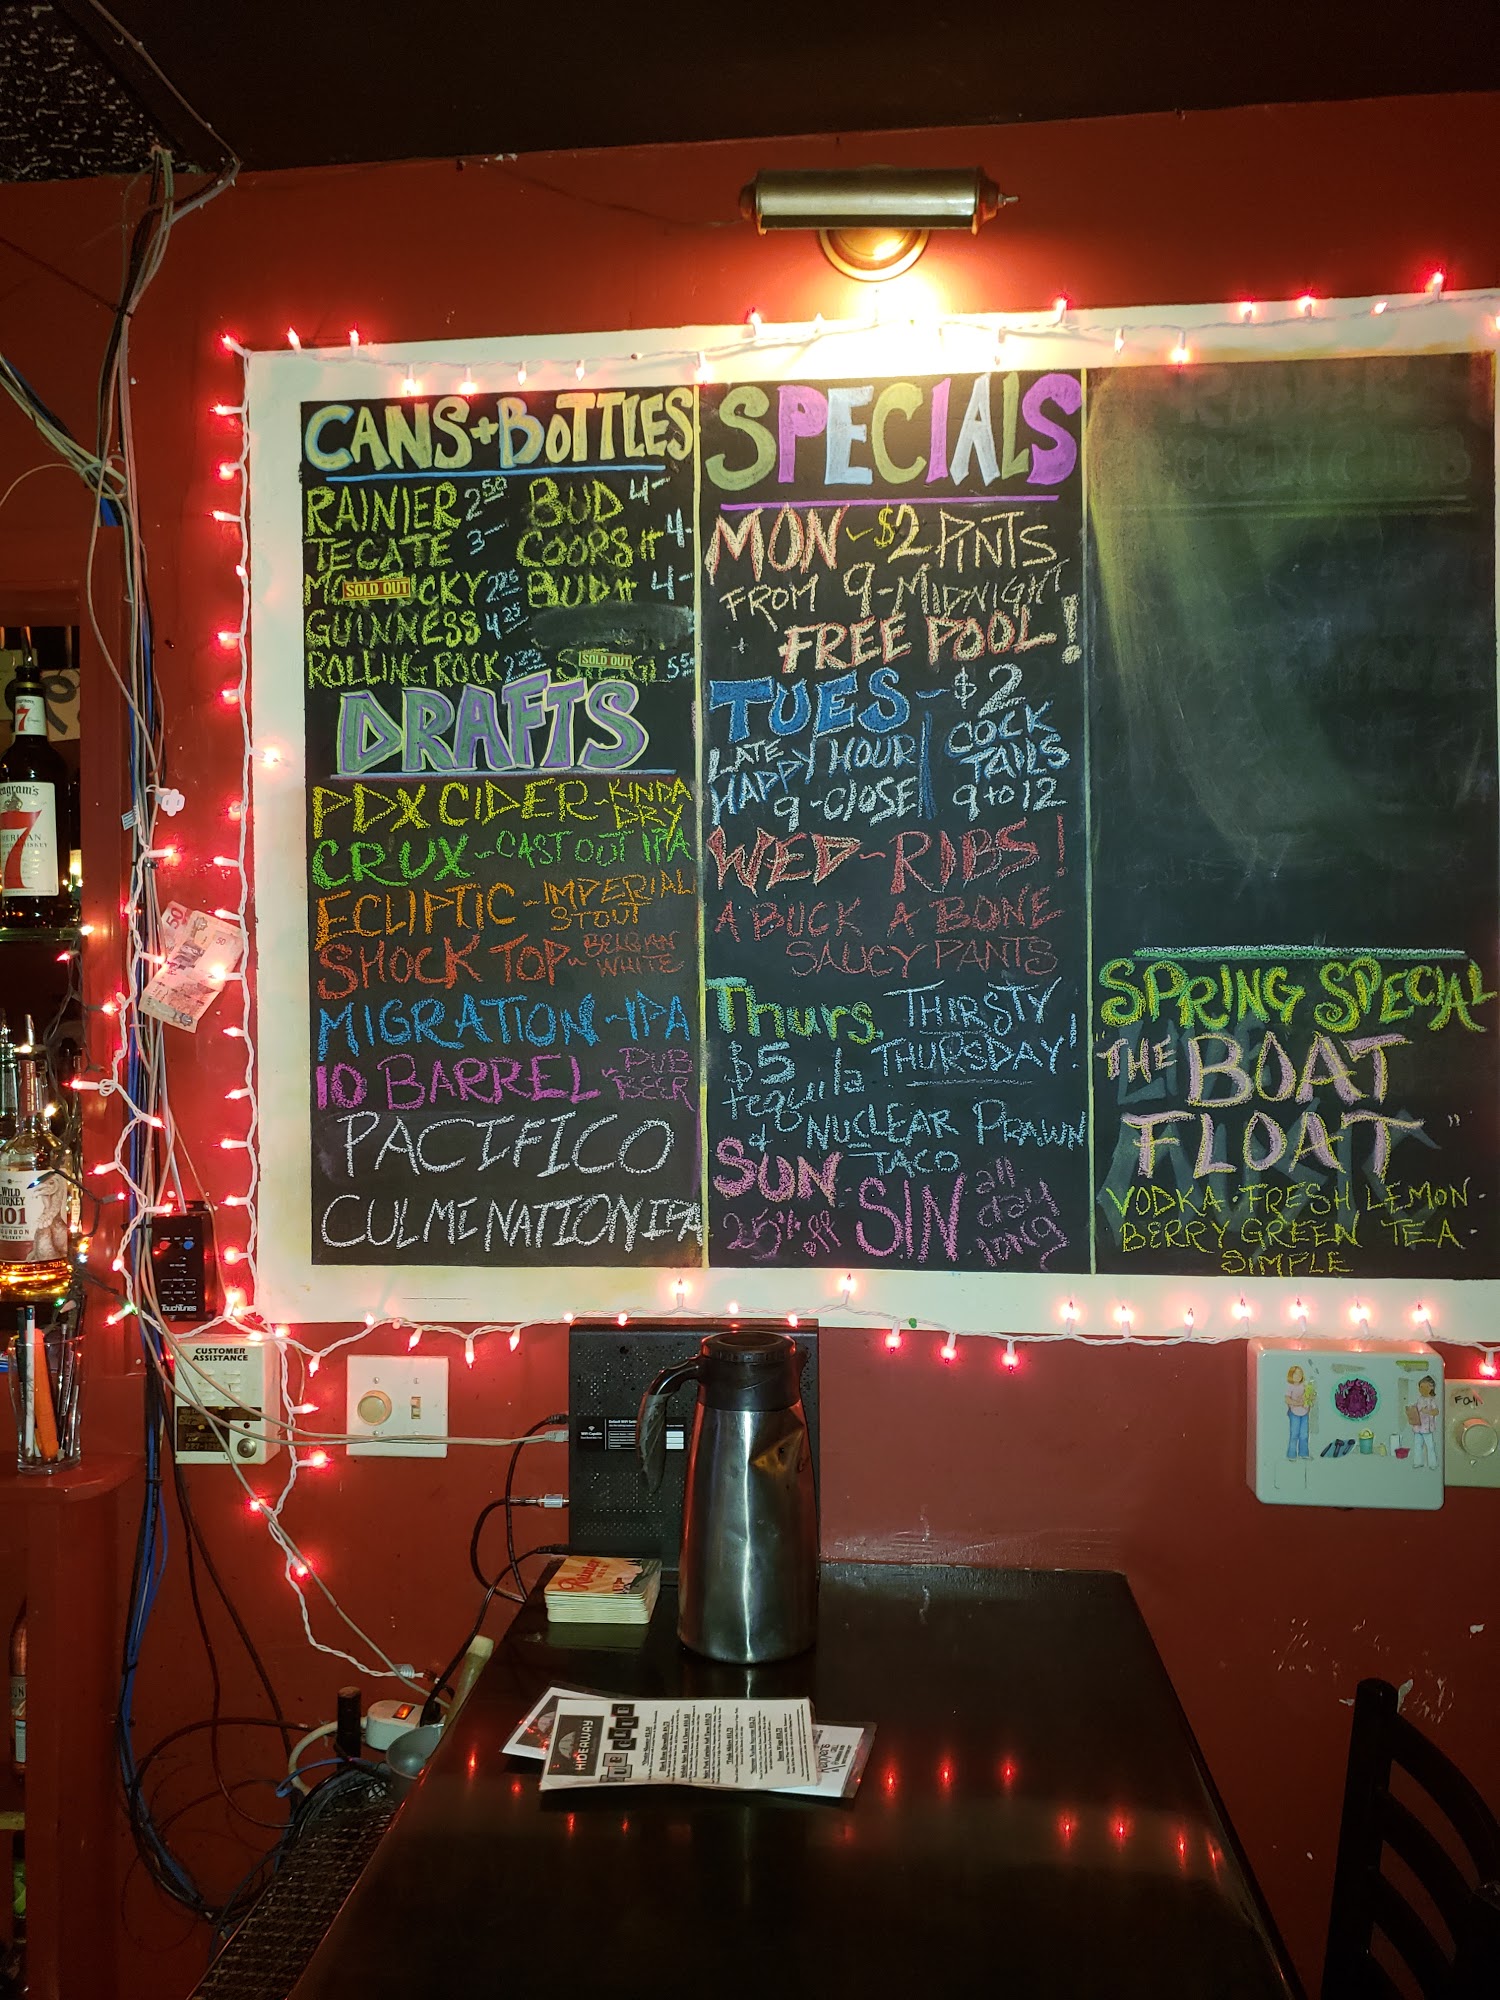 CANS+BOTTLES
RAINIER 2.50 BUD 4-
TECATE 3- COORS lt 4-
SOLD OUT CKY 2.25 BUD lt 4-
GUINNESS 4.25
ROLLING ROCK SOLD OUT 5.50
DRAFTS
PDX CIDER - KINDA
DRY
CRUX - CAST OUT IPA
ECLIPTIC - IMPERIAL
STOUT
SHOCK TOP - BELGIAN
WHITE
MIGRATION - IPA
10 BARREL - PUB
BEER
PACIFICO
CULMENATION IPA
SPECIALS
MON - $2 PINTS
FROM 9-MIDNIGHT
+ FREE POOL!
TUES - $2
COCK
TAILS
9 to 12
LATE
HAPPY HOUR
9-CLOSE
WED - RIBS!
A BUCK A BONE
SAUCY PANTS
Thurs. THIRSTY
THURSDAY!
$5
tequila
& NUCLEAR PRAWN
TACO
SUN - SIN all
day
long
25% off
SPRING SPECIAL
"THE BOAT
FLOAT"
VODKA · FRESH LEMON ·
BERRY GREEN TEA ·
SIMPLE
Seagram's
7
AMERICAN
WILD
TURKEY
101
BOURBON
50
TouchTunes
CUSTOMER
ASSISTANCE
Rainier
HIDEAWAY
WiFi Capable